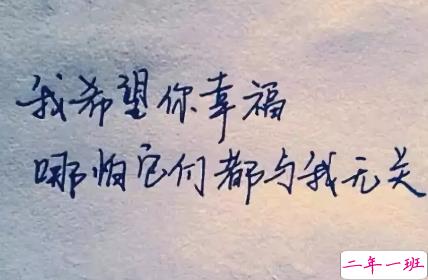 我希望你幸福
哪怕它们都与我无关
二年一班